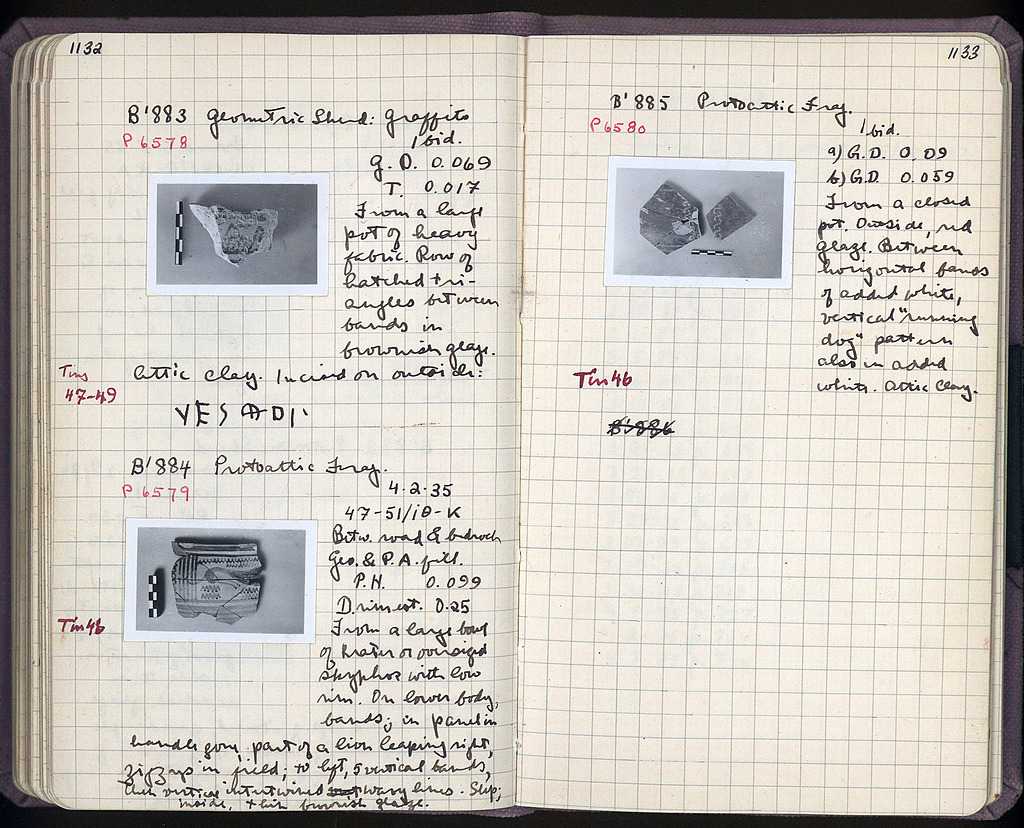 1132
B'883 Geometric Sherd: Graffito
P 6578
Ibid.
G.D. 0.069
T. 0.017
From a large
pot of heavy
fabric. Row of
hatched tri-
angles between
bands in
brownish glaze.
Tins
47-49
Attic clay. Incised on outside:
B'884 Protoattic Frag.
P 6579
4-2-35
47-51/ΙΘ-Κ
Betw. road & bedrock
Geo. & P.A. fill.
P.H. 0.099
D. rim est. 0.25
Tin 46
From a large bowl
of krater or oversized
skyphos with low
rim. On lower body,
bands; in panel in
handle zone, part of a lion leaping right,
zigzags in field; to left, 5 vertical bands,
then vertical intertwined wavy lines. Slip;
inside, thin brownish glaze.
1133
B'885 Protoattic Frag.
P 6580
Ibid.
a) G.D. 0.09
b) G.D. 0.059
From a closed
pot. Outside, red
glaze. Between
horizontal bands
of added white,
vertical "running
dog" pattern
also in added
white. Attic clay.
Tin 46
B'886